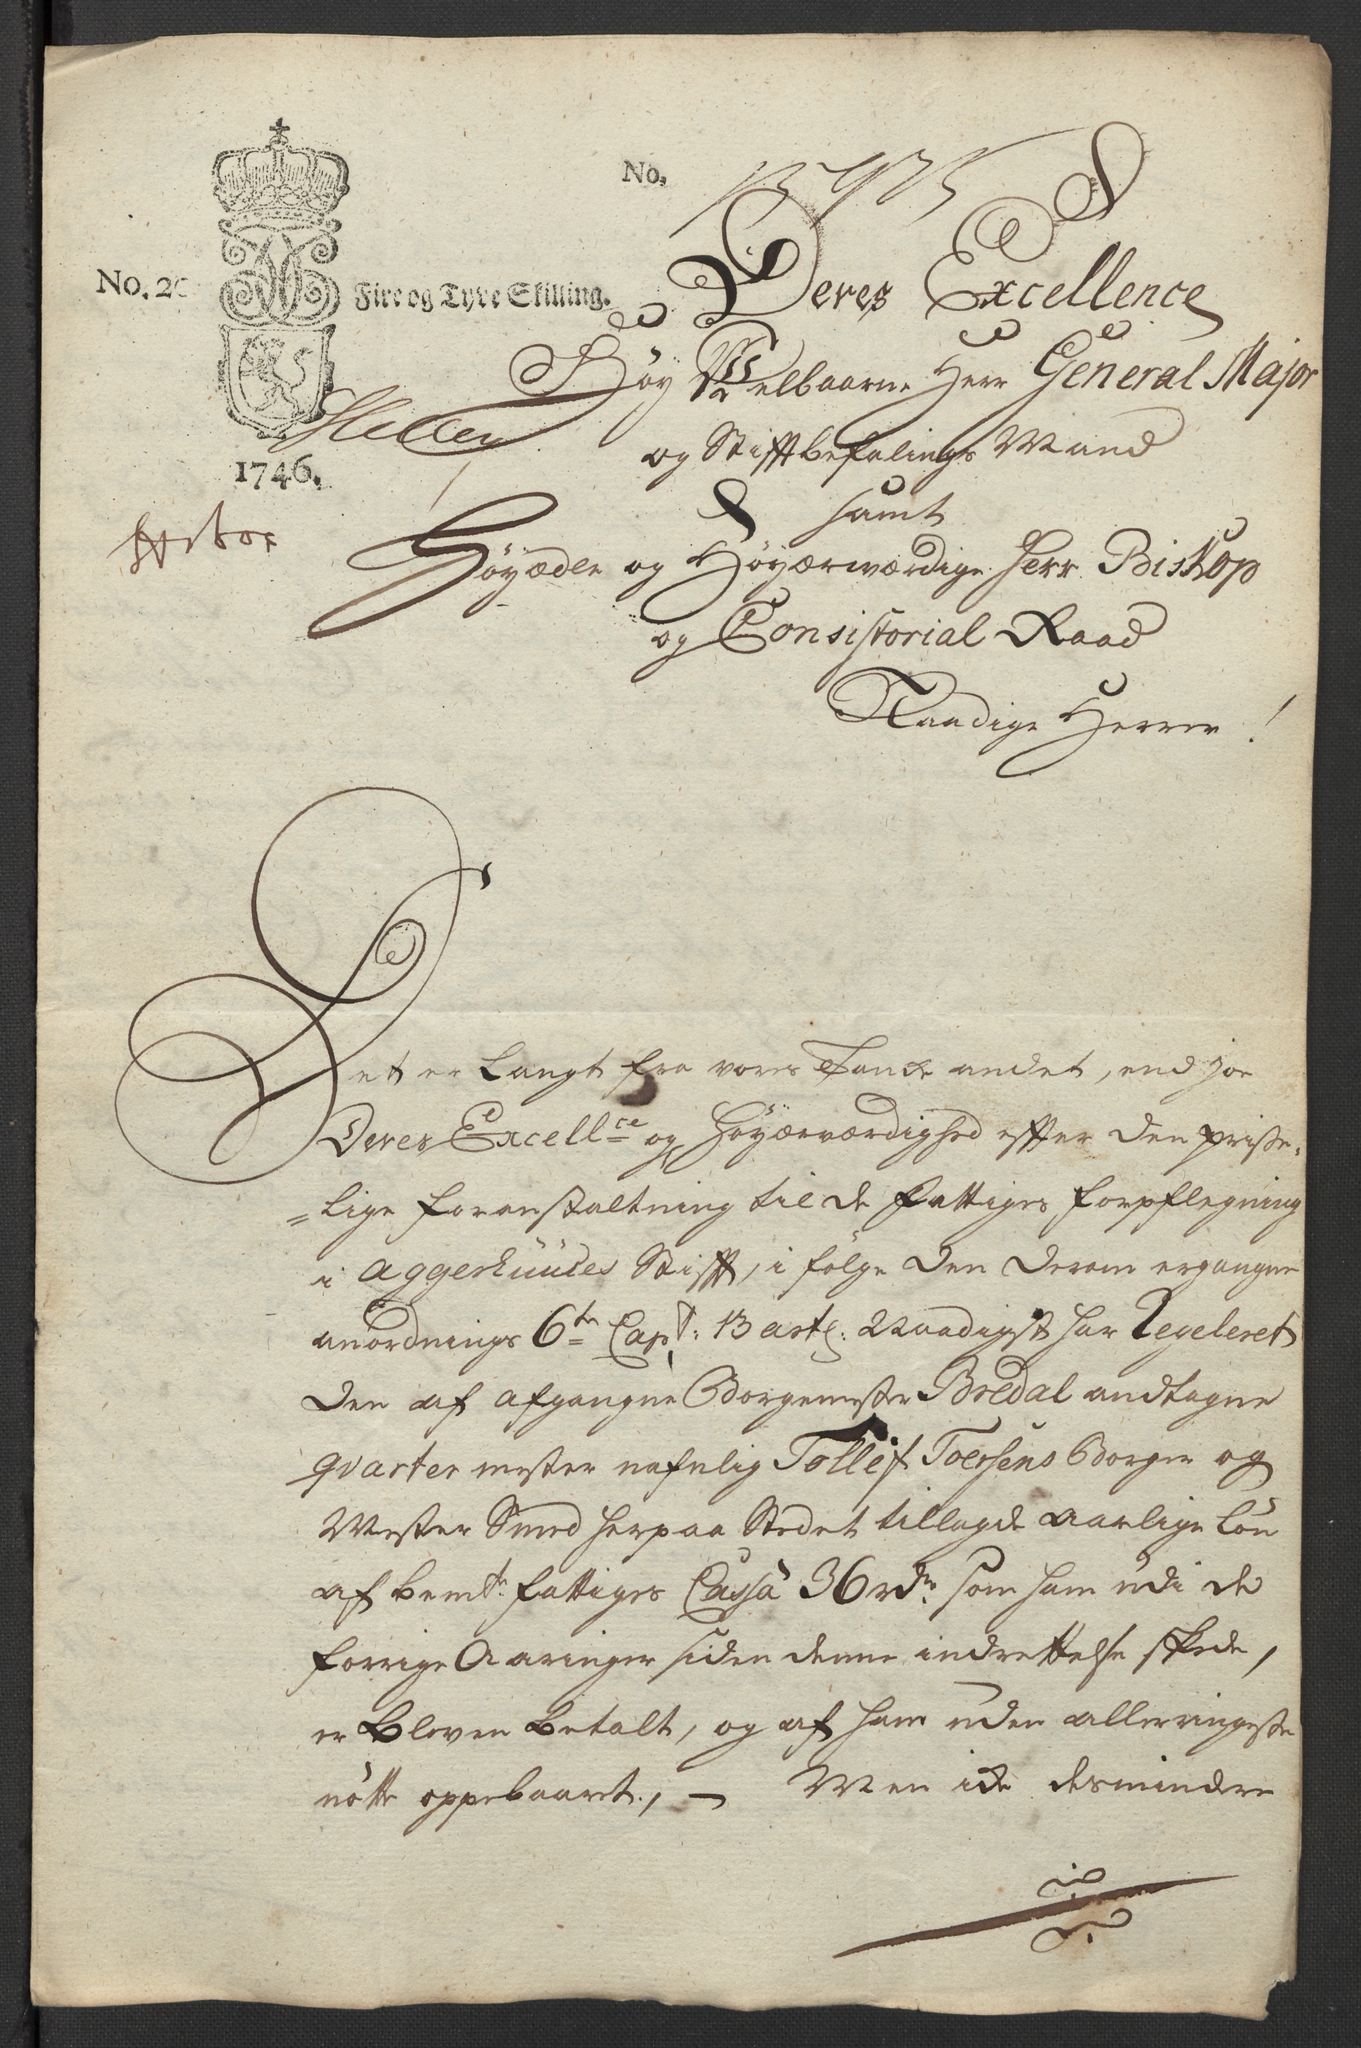 No.
Deres Excellence
No. 20
Fire og Tyve Skilling.
Høy Welbaarne Herr General Major
og Stifftbefalings Mand
1746.
samt
Høyædle og Høyærværdige Herr Biskop
og Consistorial Raad
Naadige Herrer!
Det er Langt fra vores Tancke andet, end joe
Deres Excellce og Høyærværdighed effter den prisse-
=lige foranstaltning til de fattiges forpflegning
i Aggerhuuses Stifft, i følge den derom ergangne
anordnings 6te Capt: 13 artl: Naadigst har Regeleret
den af afgangne Borgemester Bredal andtagne
qvarter mester nafnlig Tollef Toersens Borger og
Mester Smed her paa Stedet tillagde aarlige Løn
af bemte fattiges Cassa 36 rdr som ham udi de
forrige Aaringer siden denne indrettelse skede,
er bleven betalt, og af ham uden allerringeste
nötte oppebaaret, - Men icke desmindre